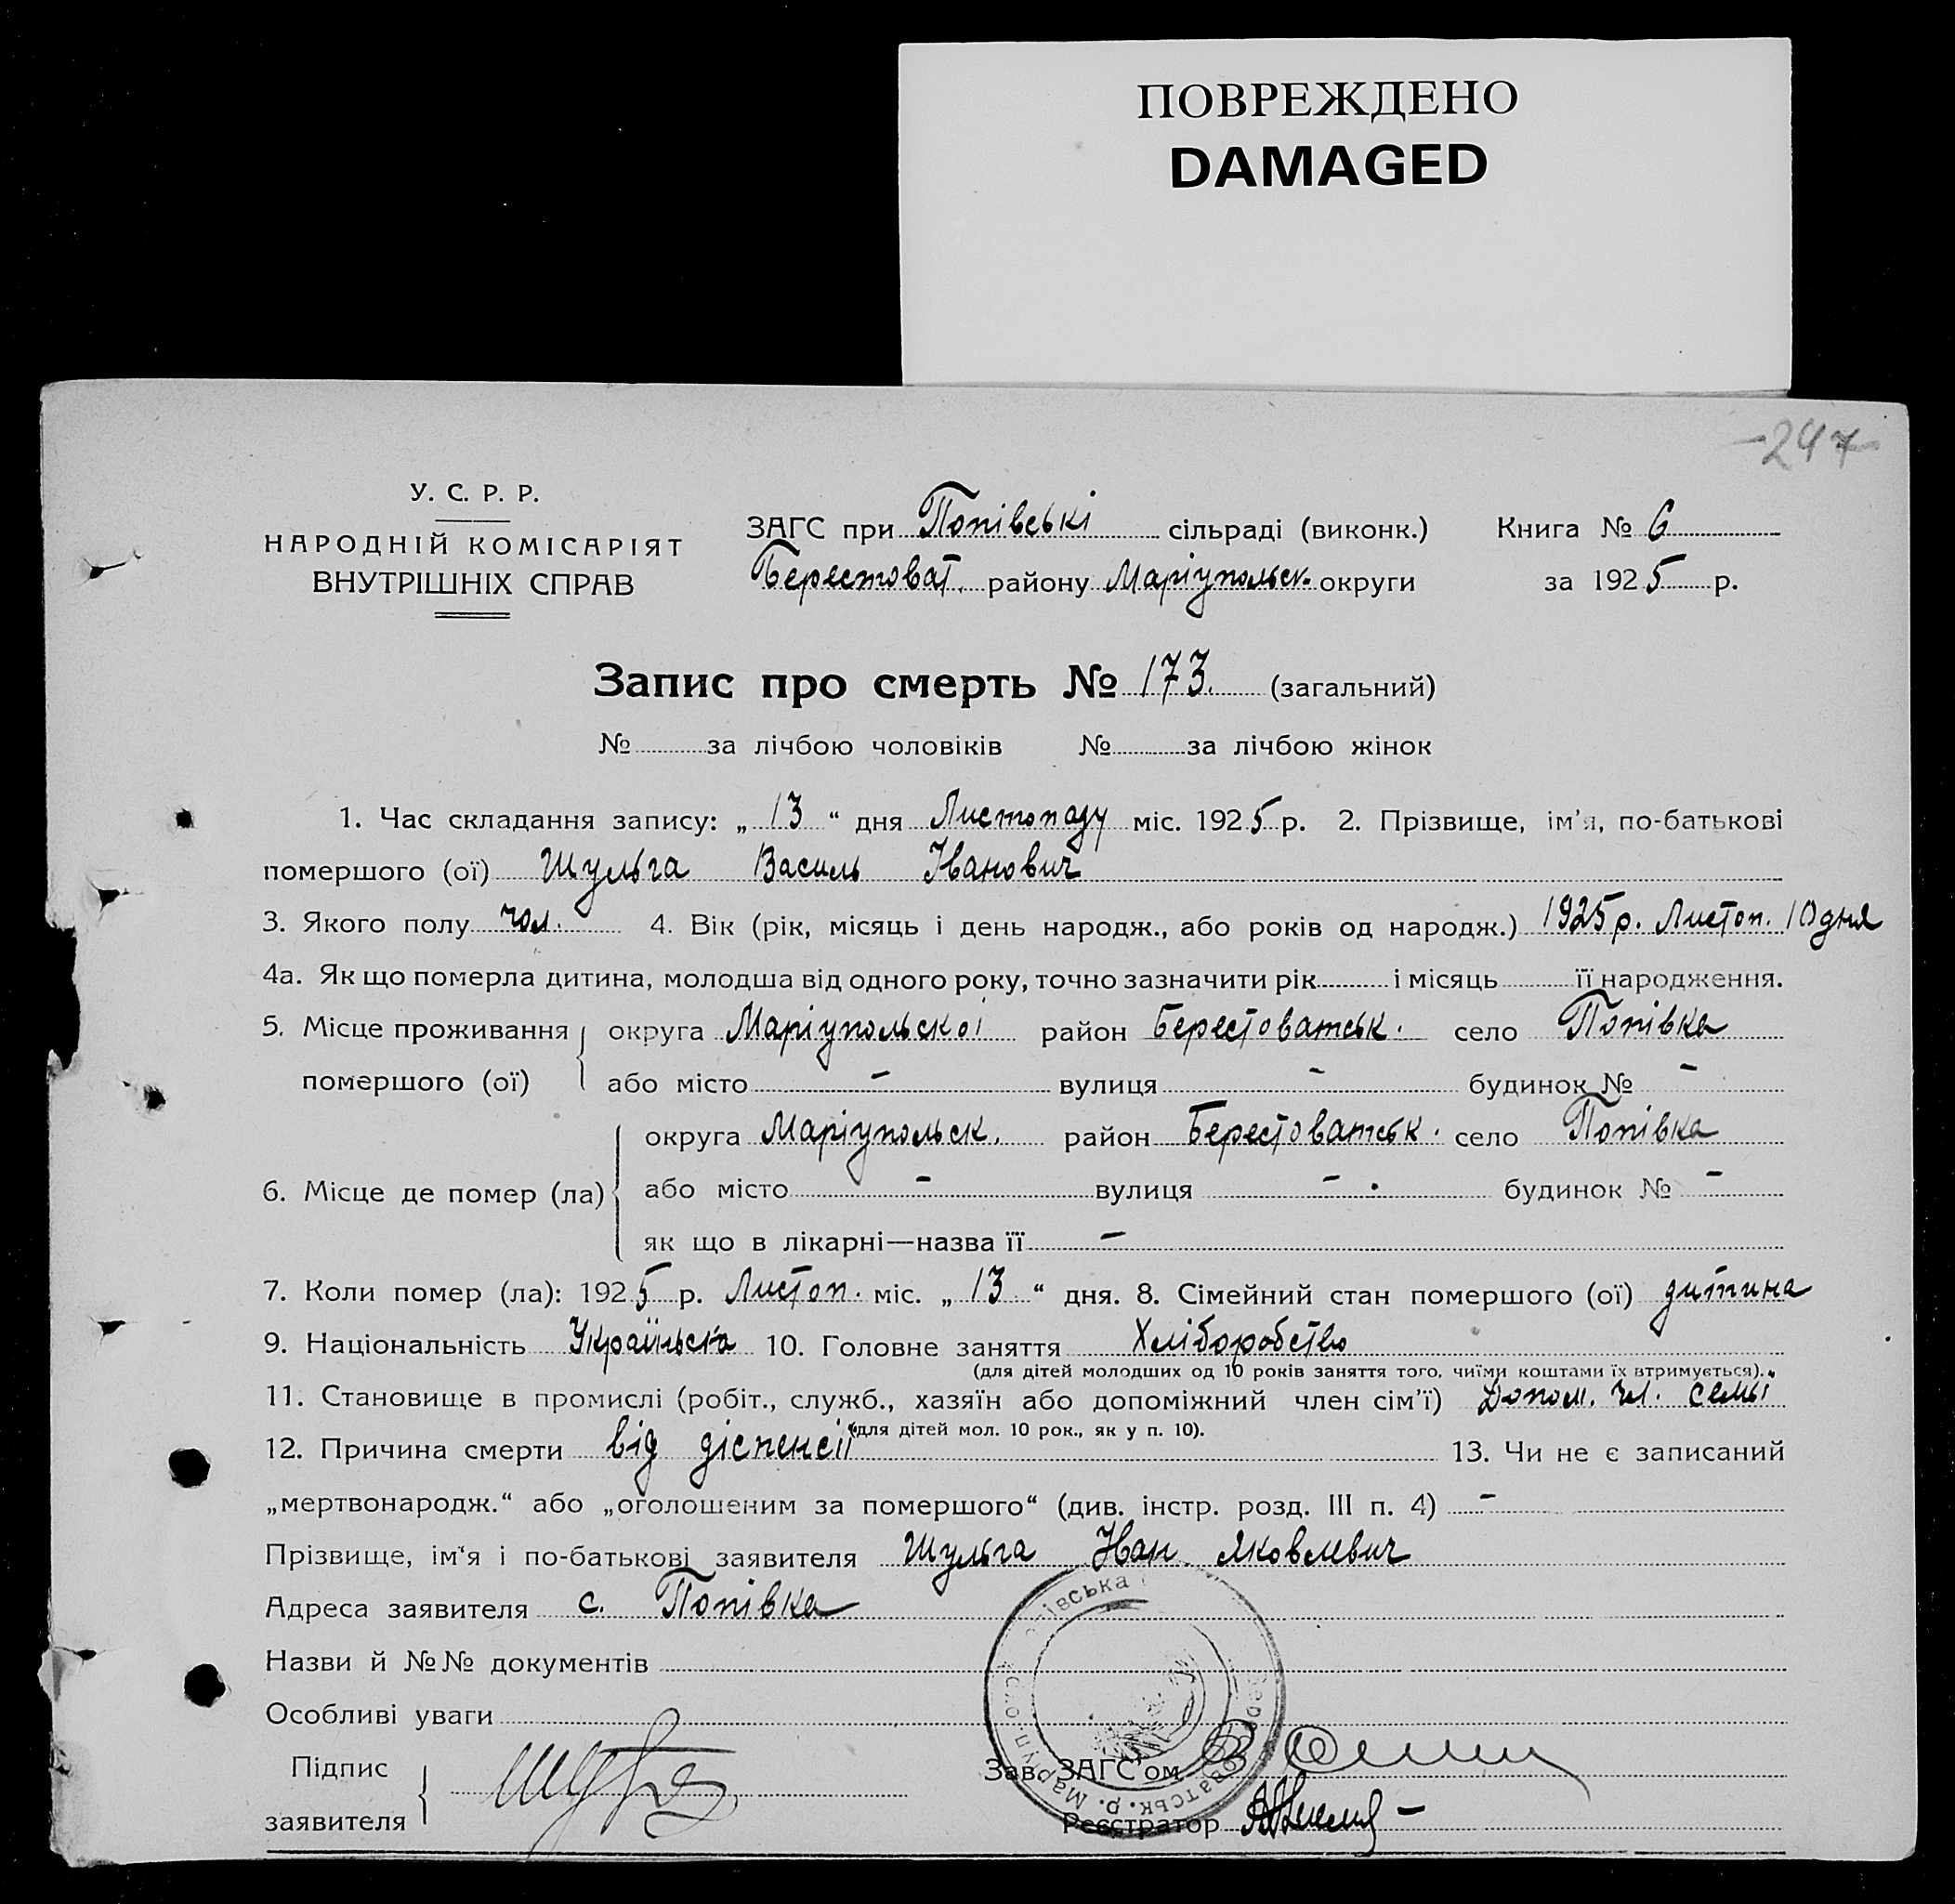 ПОВРЕЖДЕНО
DAMAGED
-247-
У. С. Р. Р.
НАРОДНІЙ КОМІСАРІЯТ
ВНУТРІШНІХ СПРАВ
ЗАГС при Попівські сільраді (виконк.) Книга № 6
Берестоват. району Маріупольск. округи за 1925 р.
Запис про смерть № 173. (загальний)
№ за лічбою чоловіків № за лічбою жінок
1. Час складання запису: „ 13 “ дня Листопаду міс. 1925 р. 2. Прізвище, ім’я, по-батькові
помершого (ої) Шульга Василь Іванович
3. Якого полу чол. 4. Вік (рік, місяць і день народж., або років од народж.) 1925 р. Листоп. 10 дня
4а. Як що померла дитина, молодша від одного року, точно зазначити рік і місяць її народження.
5. Місце проживання округа Маріупольскоі район Берестоватськ. село Попівка
помершого (ої) або місто - вулиця - будинок № -
округа Маріупольск. район Берестоватськ. село Попівка
6. Місце де помер (ла) або місто - вулиця - . будинок № -
як що в лікарні—назва її -
7. Коли помер (ла): 1925 р. Листоп. міс. „ 13 “ дня. 8. Сімейний стан помершого (ої) дитина
9. Національність Українська 10. Головне заняття Хліборобство
(для дітей молодших од 10 років заняття того, чиїми коштами їх втримується).
11. Становище в промислі (робіт., служб., хазяїн або допоміжний член сім’ї) Допом. чл. семьї
(для дітей мол. 10 рок., як у п. 10).
12. Причина смерти від діспенсії 13. Чи не є записаний
„мертвонародж.“ або „оголошеним за помершого“ (див. інстр. розд. III п. 4) -
Прізвище, ім‘я і по-батькові заявителя Шульга Іван Яковлевич
Адреса заявителя с. Попівка
Назви й №№ документів
Особливі уваги
Підпис
заявителя
Зав. ЗАГС’ом
Реєстратор